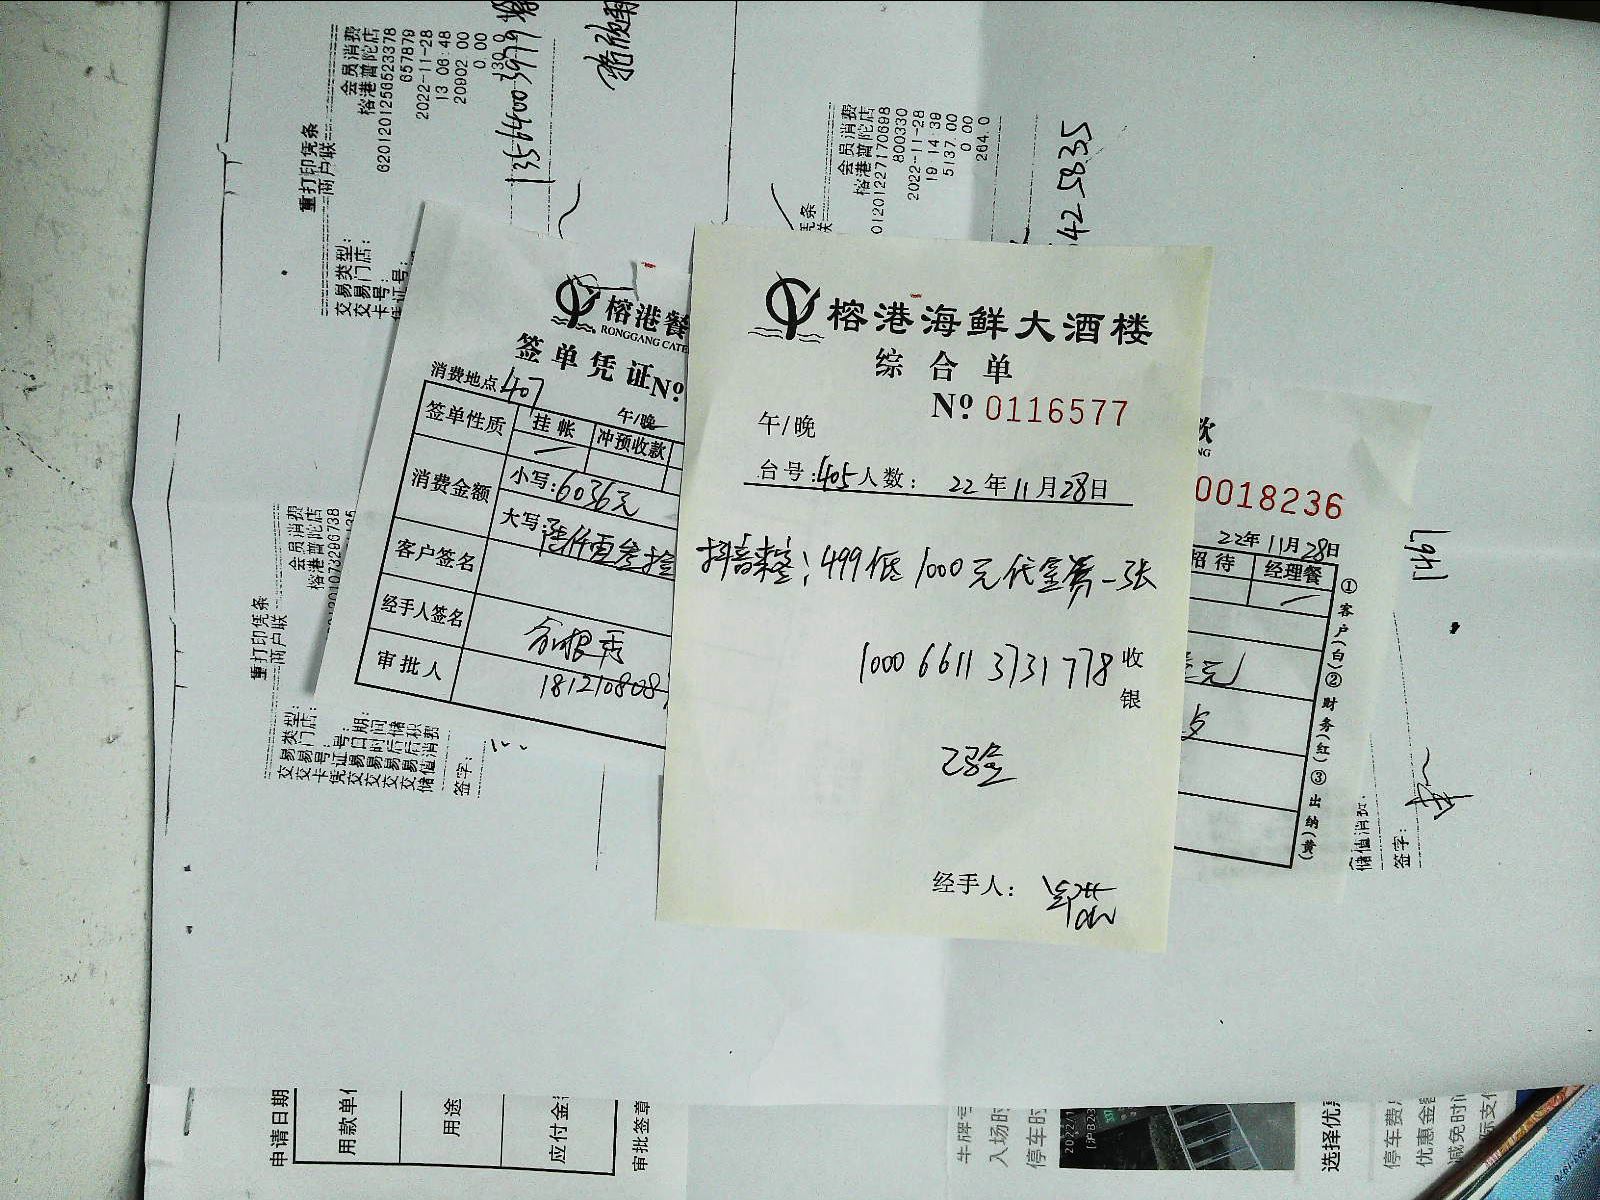 榕港海鲜大酒楼
综合单
№ 0116577
午/晚
台号:405人数: 22年11月28日
抖音来客:499低1000元代金券一张
1000 6611 3731 778 收
银
已验
经手人:
榕港餐
RONGGANG CATE
签单凭证№
0018236
消费地点 407
午/晚
22年11月28日
签单性质 挂帐 冲预收款 招待 经理餐
消费金额 小写:6036元
大写:陆仟零叁拾
元
客户签名
经手人签名
181210808
审批人
①客户(白)②财务(红)③出纳(黄)
重打印凭条
商户联
交易类型: 会员消费
交易门店: 榕港普陀店
卡号: 6201201256523378
凭证号: 657879
2022-11-28
13 06 48
20902 00
0 00
130 0
13564003979
凭条
联
会员消费
榕港普陀店
0120122717069 8
800330
2022-11-28
19 14 39
5137.00
0 00
264.0
42 5835
重打印凭条
商户联
交易类型: 会员消费
交易门店: 榕港普陀店
卡号:
凭证号:
交易日期:
交易时间
交易后储
交易后积
储值消费
签字:
储值消费.
签字:
1467
申请日期
用款单位
用途
应付金
审批签章
车牌号
入场时
停车时
选择优
停车费
优惠金
减免时
际支付